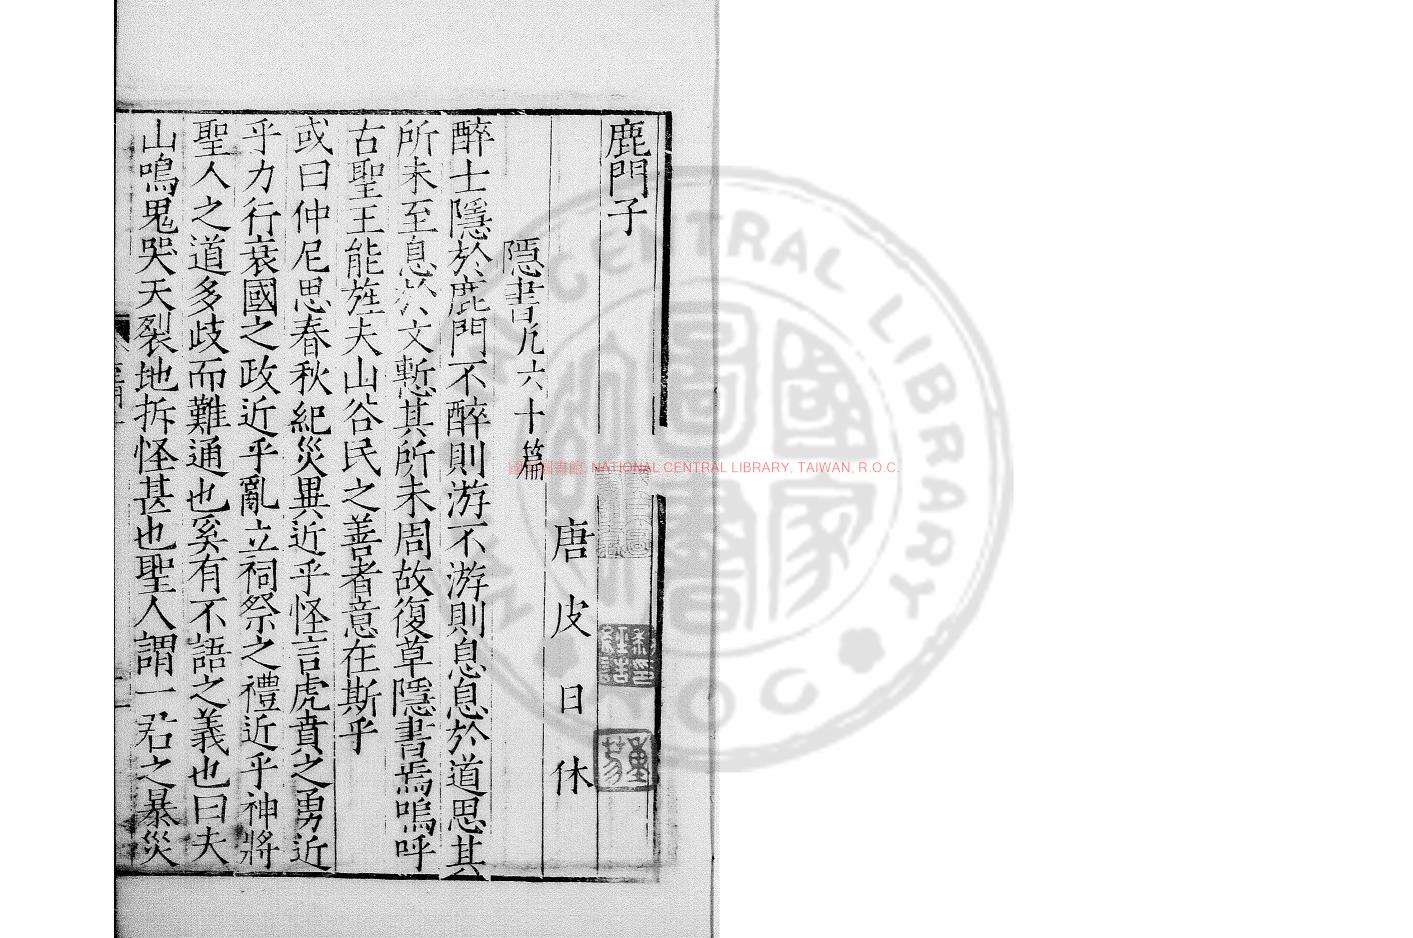 鹿門子
唐皮日休
隱書凢六十篇
醉士隱於鹿門不醉則游不游則息息於道思其
所未至息於文慙其所未周故復草隱書焉嗚呼
古聖王能旌夫山谷民之善者意在斯乎
或曰仲尼思春秋紀災異近乎怪言虎賁之勇近
乎力行衰國之政近乎亂立祠祭之禮近乎神將
聖人之道多歧而難通也奚有不語之義也曰夫
山鳴鬼哭天裂地拆怪甚也聖人謂一君之暴災
國家圖書館, NATIONAL CENTRAL LIBRARY, TAIWAN, R.O.C.